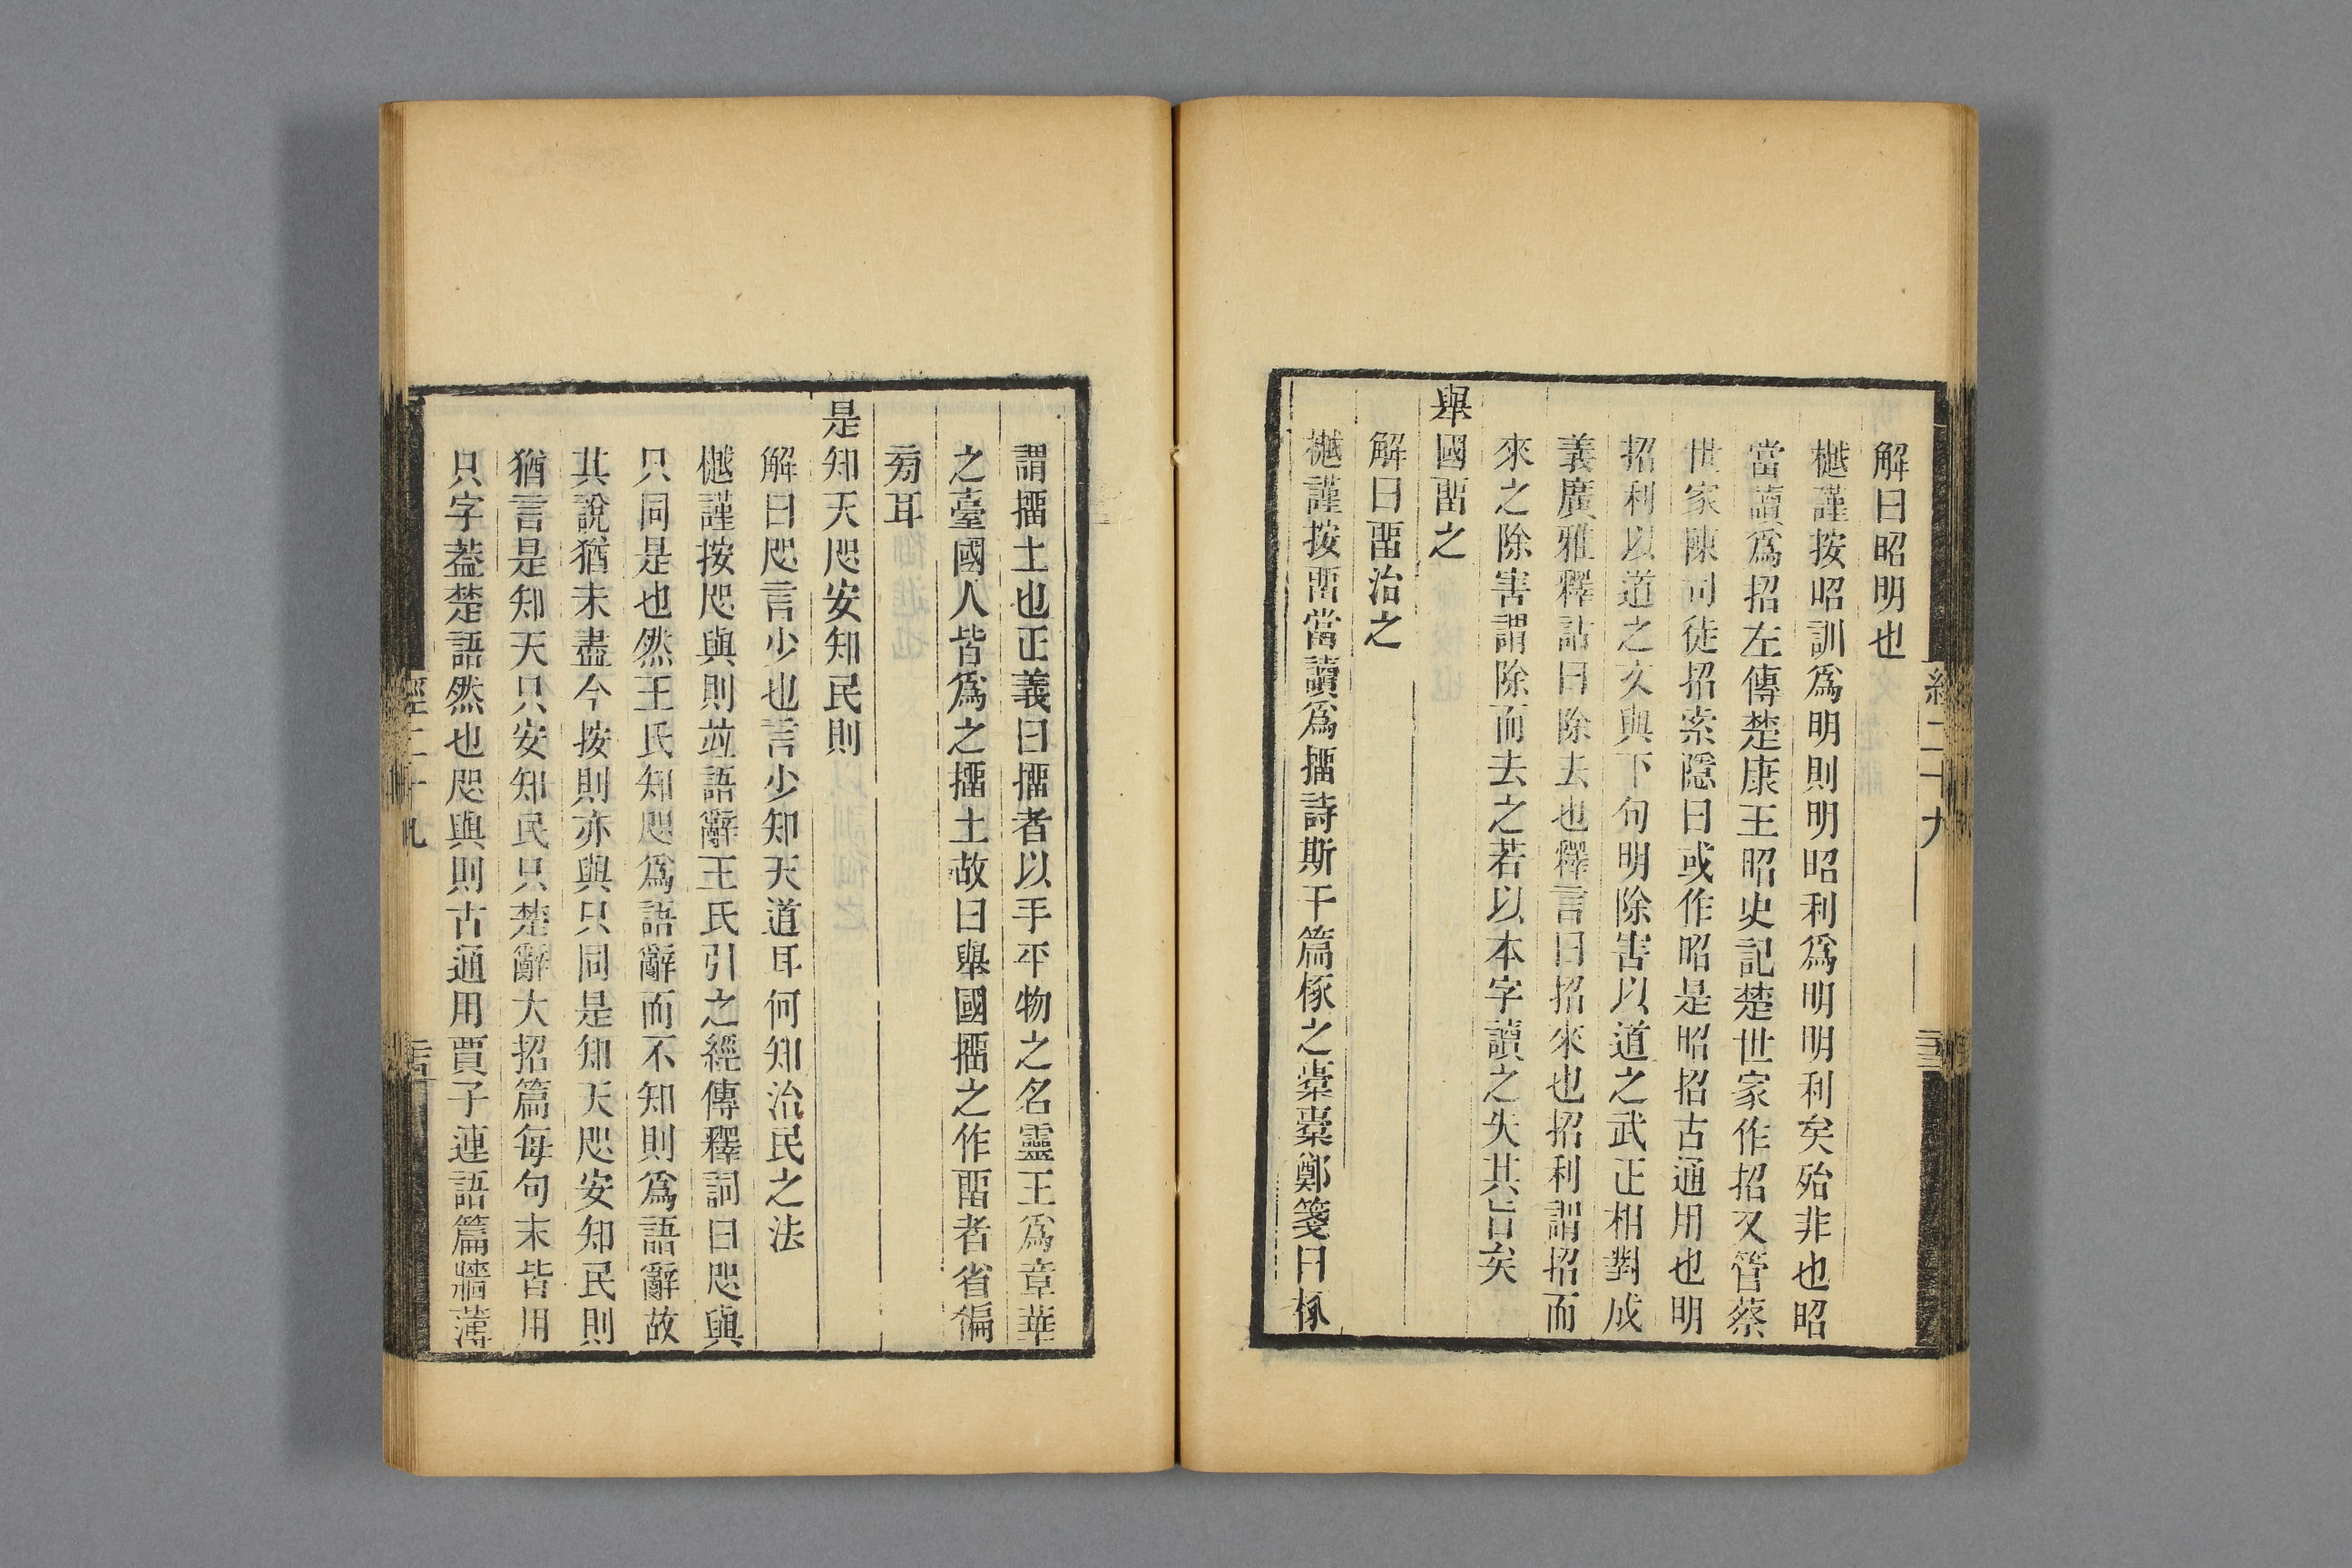 解曰昭明也
樾謹按昭訓爲明則明昭利爲明明利矣殆非也昭
當讀爲招左傳楚康王昭史記楚世家作招又管蔡
世家陳司徒招索隱曰或作昭是昭招古通用也明
招利以道之文與下句明除害以道之武正相對成
義廣雅釋詁曰除去也釋言曰招來也招利謂招而
來之除害謂除而去之若以本字讀之失其旨矣
舉國畱之
解曰畱治之
樾謹按畱當讀爲㨨詩斯干篇椓之橐橐鄭箋曰椓
經二十九
謂㨨土也正義曰㨨者以手平物之名靈王爲章華
之臺國人皆爲之㨨土故曰舉國㨨之作畱者省偏
㫄耳
是知天咫安知民則
解曰咫言少也言少知天道耳何知治民之法
樾謹按咫與則竝語辭王氏引之經傳釋詞曰咫與
只同是也然王氏知咫爲語辭而不知則爲語辭故
其說猶未盡今按則亦與只同是知天咫安知民則
猶言是知天只安知民只楚辭大招篇每句末皆用
只字葢楚語然也咫與則古通用賈子連語篇牆薄
經二十九